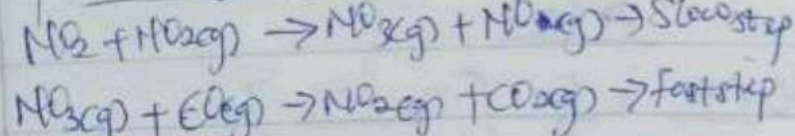 NO2 + NO2(g) → NO3(g) + NO(g) → Slow step
NO3(g) + CO(g) → NO2(g) + CO2(g) → fast step